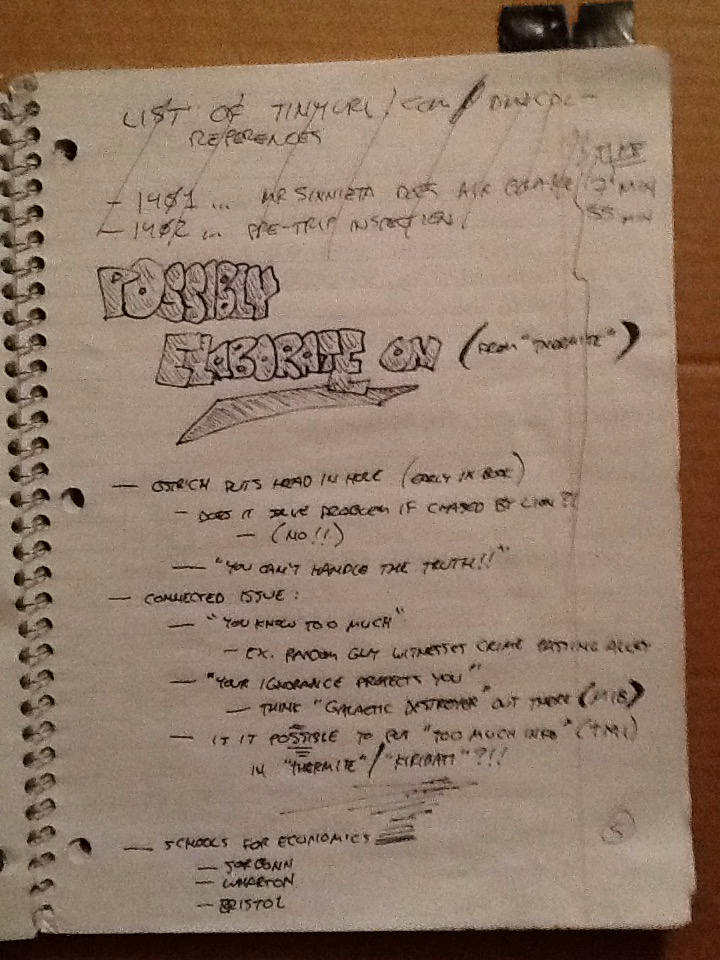 LIST OF TINYURL/COM/
REFERENCES
TIME
- 1401 ... MR SINNIETA DOES AIR 12 MIN
- 1402 ... PRE-TRIP INSPECTION 55 MIN
POSSIBLY
ELABORATE ON (FROM "THERMITE")
- OSTRICH PUTS HEAD IN HOLE (EARLY IN BOOK)
- DOES IT SOLVE PROBLEM IF CHASED BY LION?!
- (NO!!)
- "YOU CAN'T HANDLE THE TRUTH!!"
- CONNECTED ISSUE:
- "YOU KNOW TOO MUCH"
- EX. RANDOM GUY WITNESSES CRIME PASSING ALLEY
- "YOUR IGNORANCE PROTECTS YOU"
- THINK "GALACTIC DESTROYER" OUT THERE (MIB)
- IS IT POSSIBLE TO PUT "TOO MUCH INFO" (TMI)
IN "THERMITE"/"KIRIBATI"?!!
5
- SCHOOLS FOR ECONOMICS
- SORBONN
- WHARTON
- BRISTOL